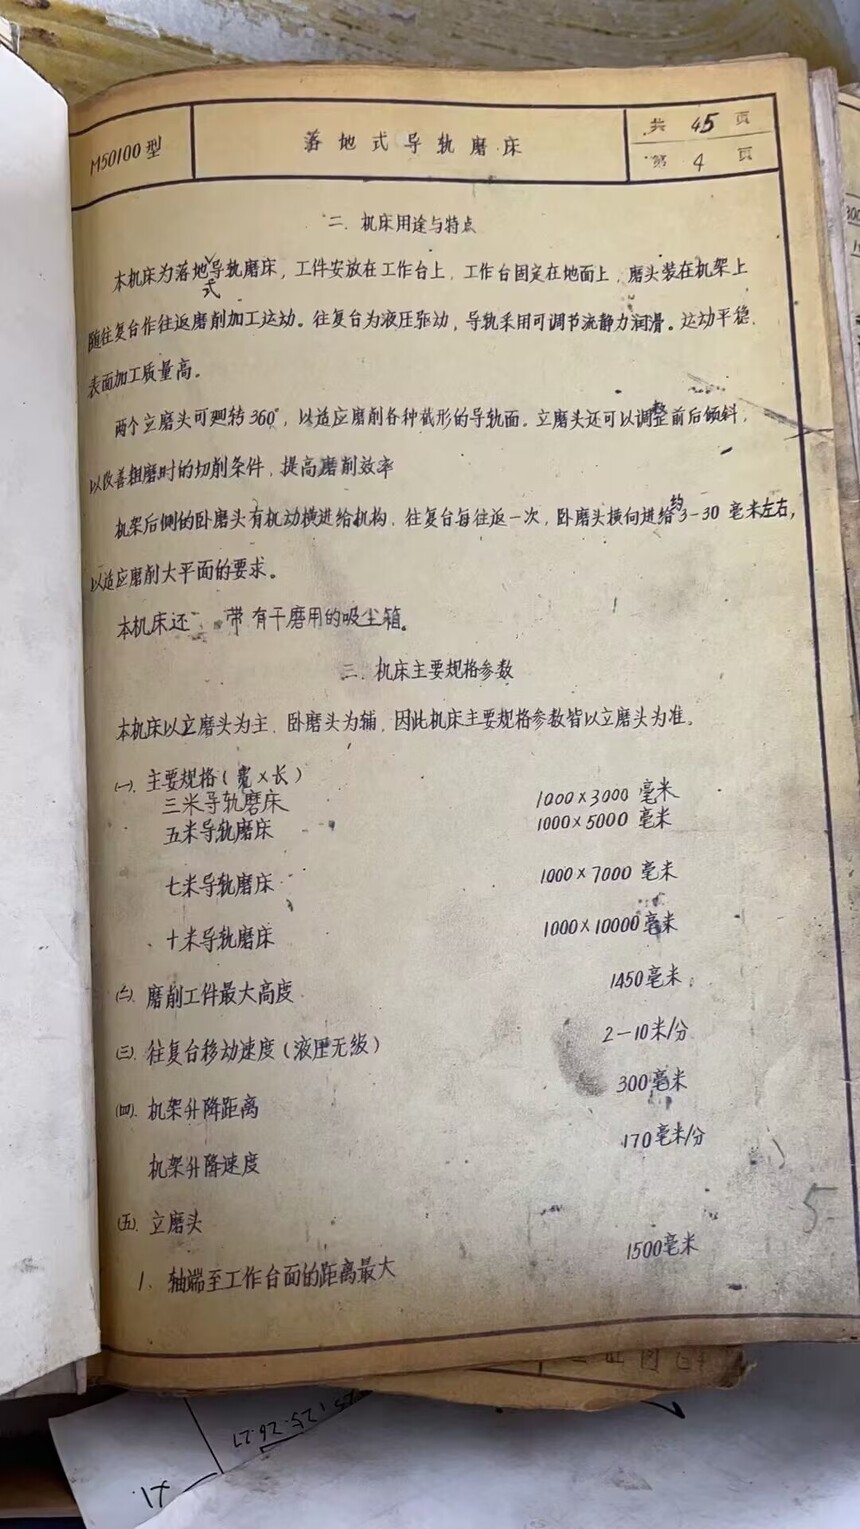 M50100型
落地式导轨磨床
共 45 页
第 4 页
二. 机床用途与特点
本机床为落地式导轨磨床，工件安放在工作台上，工作台固定在地面上，磨头装在机架上
随往复台作往返磨削加工运动。往复台为液压驱动，导轨采用可调节流静力润滑。运动平稳，
表面加工质量高。
两个立磨头可廻转360°，以适应磨削各种截形的导轨面。立磨头还可以调整前后倾斜，
以改善粗磨时的切削条件，提高磨削效率
机架后侧的卧磨头有机动横进给机构，往复台每往返一次，卧磨头横向进给约3-30 毫米左右，
以适应磨削大平面的要求。
本机床还带有干磨用的吸尘箱。
三. 机床主要规格参数
本机床以立磨头为主，卧磨头为辅，因此机床主要规格参数皆以立磨头为准。
(一). 主要规格(宽×长)
三米导轨磨床 1000×3000 毫米
五米导轨磨床 1000×5000 毫米
七米导轨磨床 1000×7000 毫米
十米导轨磨床 1000×10000 毫米
(二). 磨削工件最大高度 1450毫米
(三). 往复台移动速度(液压无级) 2-10米/分
(四). 机架升降距离 300毫米
机架升降速度 170毫米/分
(五). 立磨头
1. 轴端至工作台面的距离最大 1500毫米
5